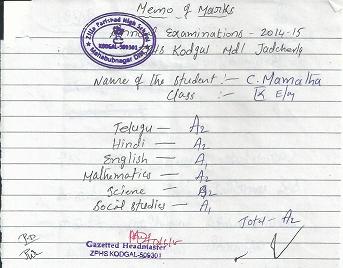 Memo of Marks
Zilla Parishad High School
KODGAL-509301
Mahabubnagar Dist.
Examinations - 2014-15
ZPHS Kodgal Mdl Jadcherla
Name of the student :- C. Mamatha
Class :- IX E/m
Telugu — A2
Hindi — A2
English — A1
Mathematics — A2
Science — B2
Social Studies — A1
Total - A2
Gazetted Headmaster
ZPHS KODGAL-509301